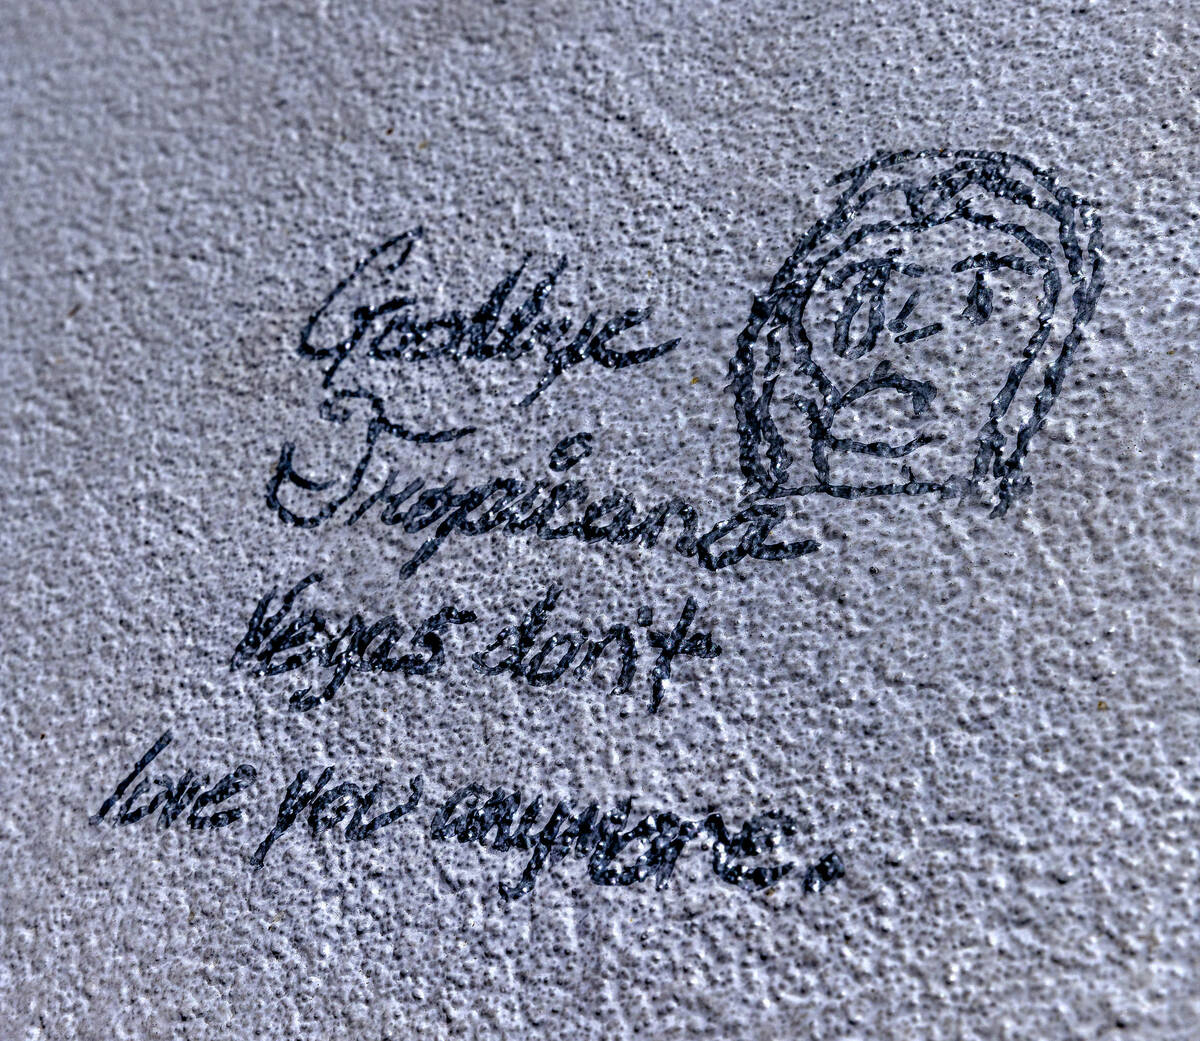 Goodbye
Tropicana
Vegas don't
love you anymore.